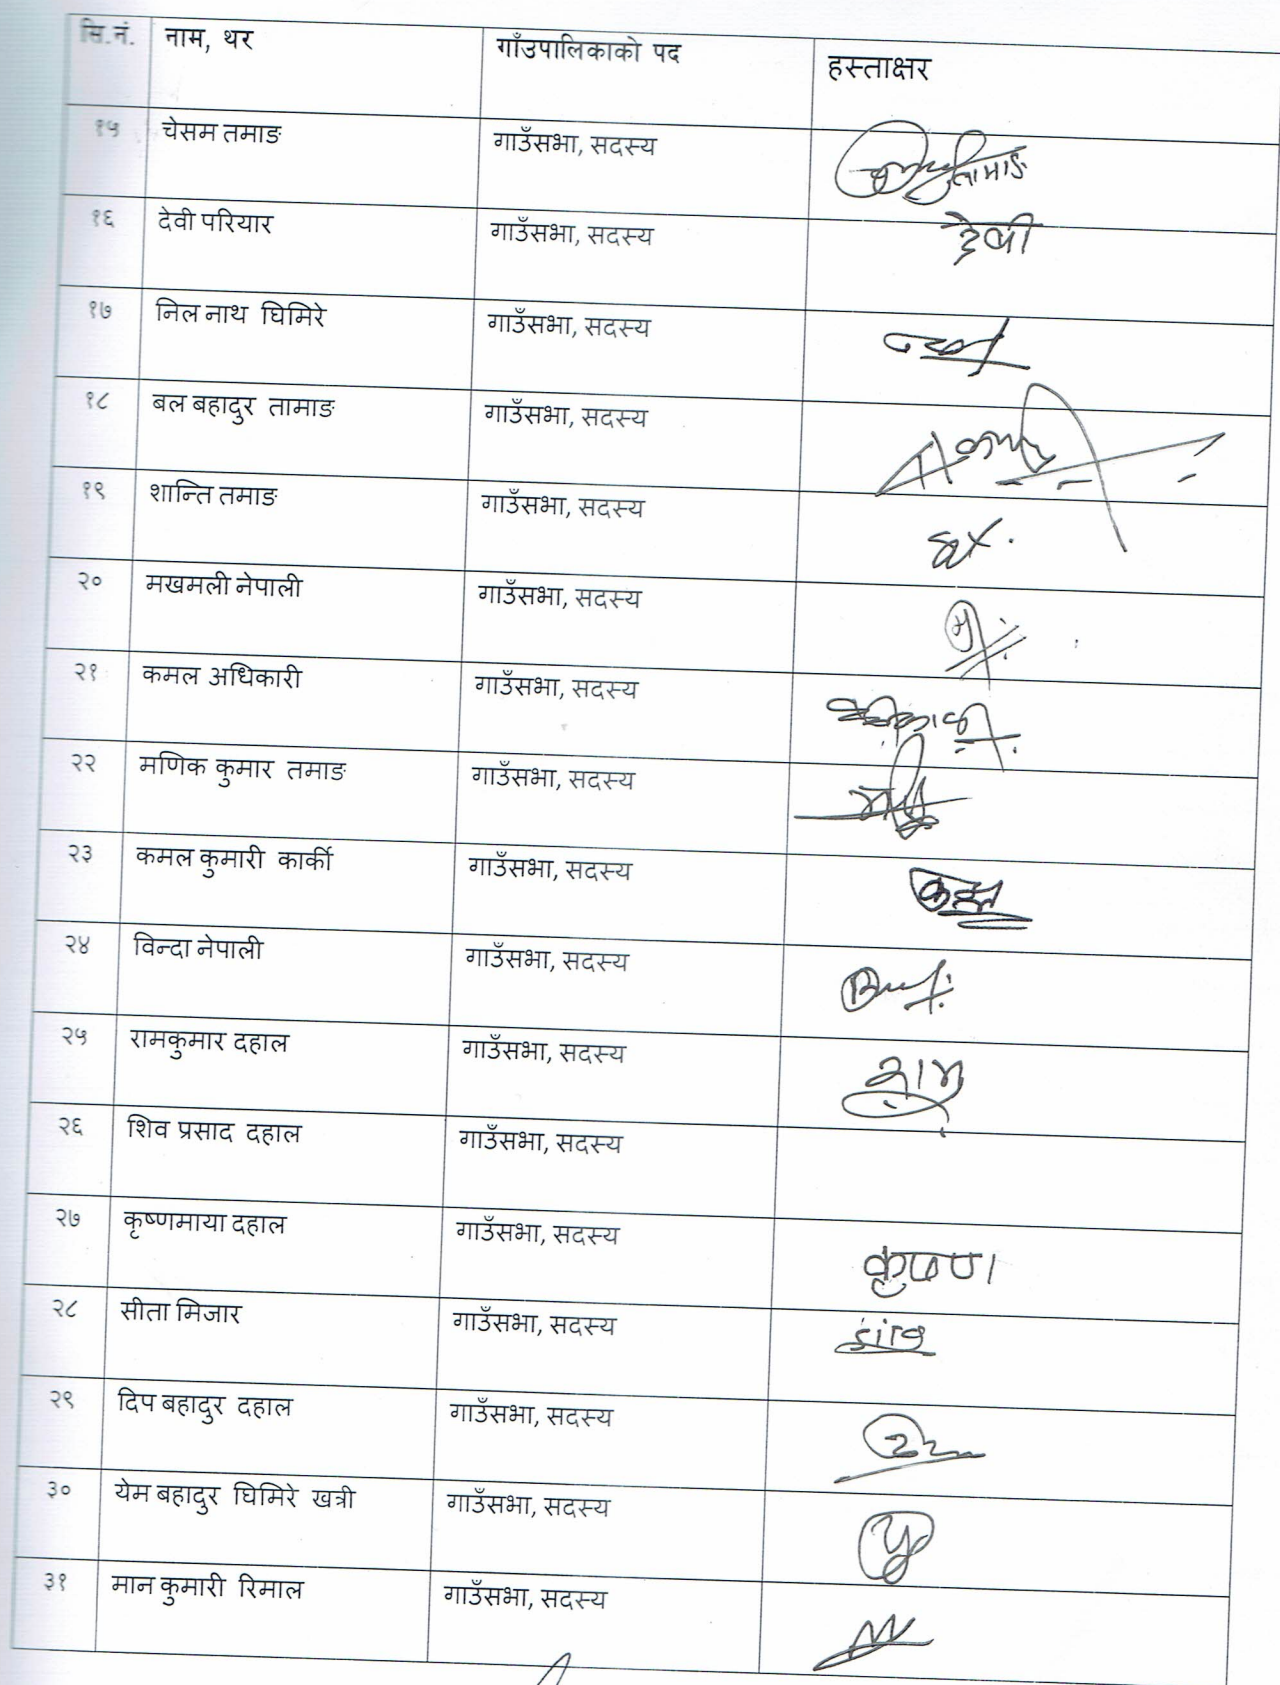 सि.नं. नाम, थर गाँउपालिकाको पद हस्ताक्षर
१५ चेसम तमाङ गाउँसभा, सदस्य तामाङ
१६ देवी परियार गाउँसभा, सदस्य देवी
१७ निल नाथ घिमिरे गाउँसभा, सदस्य
१८ बल बहादुर तामाङ गाउँसभा, सदस्य
१९ शान्ति तमाङ गाउँसभा, सदस्य
२० मखमली नेपाली गाउँसभा, सदस्य
२१ कमल अधिकारी गाउँसभा, सदस्य
२२ मणिक कुमार तमाङ गाउँसभा, सदस्य
२३ कमल कुमारी कार्की गाउँसभा, सदस्य
२४ विन्दा नेपाली गाउँसभा, सदस्य
२५ रामकुमार दहाल गाउँसभा, सदस्य राम
२६ शिव प्रसाद दहाल गाउँसभा, सदस्य
२७ कृष्णमाया दहाल गाउँसभा, सदस्य कृष्ण
२८ सीता मिजार गाउँसभा, सदस्य
२९ दिप बहादुर दहाल गाउँसभा, सदस्य
३० येम बहादुर घिमिरे खत्री गाउँसभा, सदस्य
३१ मान कुमारी रिमाल गाउँसभा, सदस्य